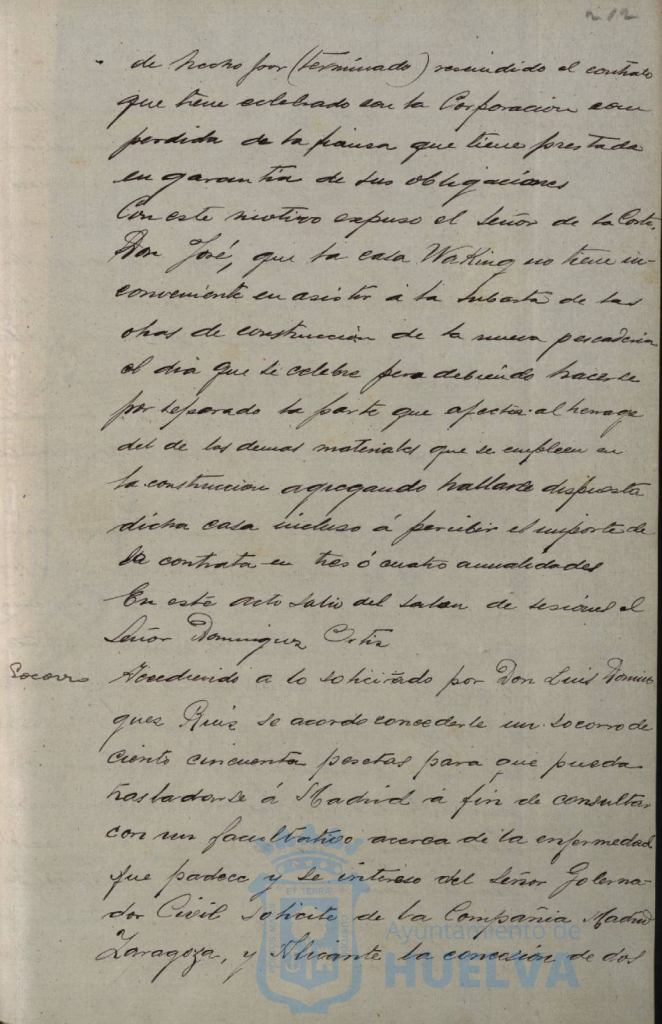 212
de hecho por (terminado) rescindido el contrato
que tiene celebrado con la Corporacion con
perdida de la fianza que tiene prestada
en garantia de sus obligaciones
Con este motivo expuso el Señor de la Corte,
Don José, que la casa Waking no tiene in-
conveniente en asistir á la subasta de las
obras de construcción de la nueva pescaderia
el dia que se celebre pero debiendo hacerse
por separado la parte que afecta al herrage
del de los demas materiales que se empleen en
la construccion agregando hallarse dispuesta
dicha casa incluso á percibir el importe de
la contrata en tres ó cuatro anualidades
En este acto salio del salon de sesiones el
Señor Dominguez Ortiz
Socorro
Accediendo a lo solicitado por Don Luis Domin
guez Ruiz se acordo concederle un socorro de
ciento cincuenta pesetas para que pueda
trasladarse á Madrid á fin de consultar
con un facultativo acerca de la enfermedad
que padece y se intereso del Señor Goberna-
dor Civil solicite de la Compañia Madrid
Zaragoza, y Alicante la concesion de dos
Ayuntamiento de
HUELVA